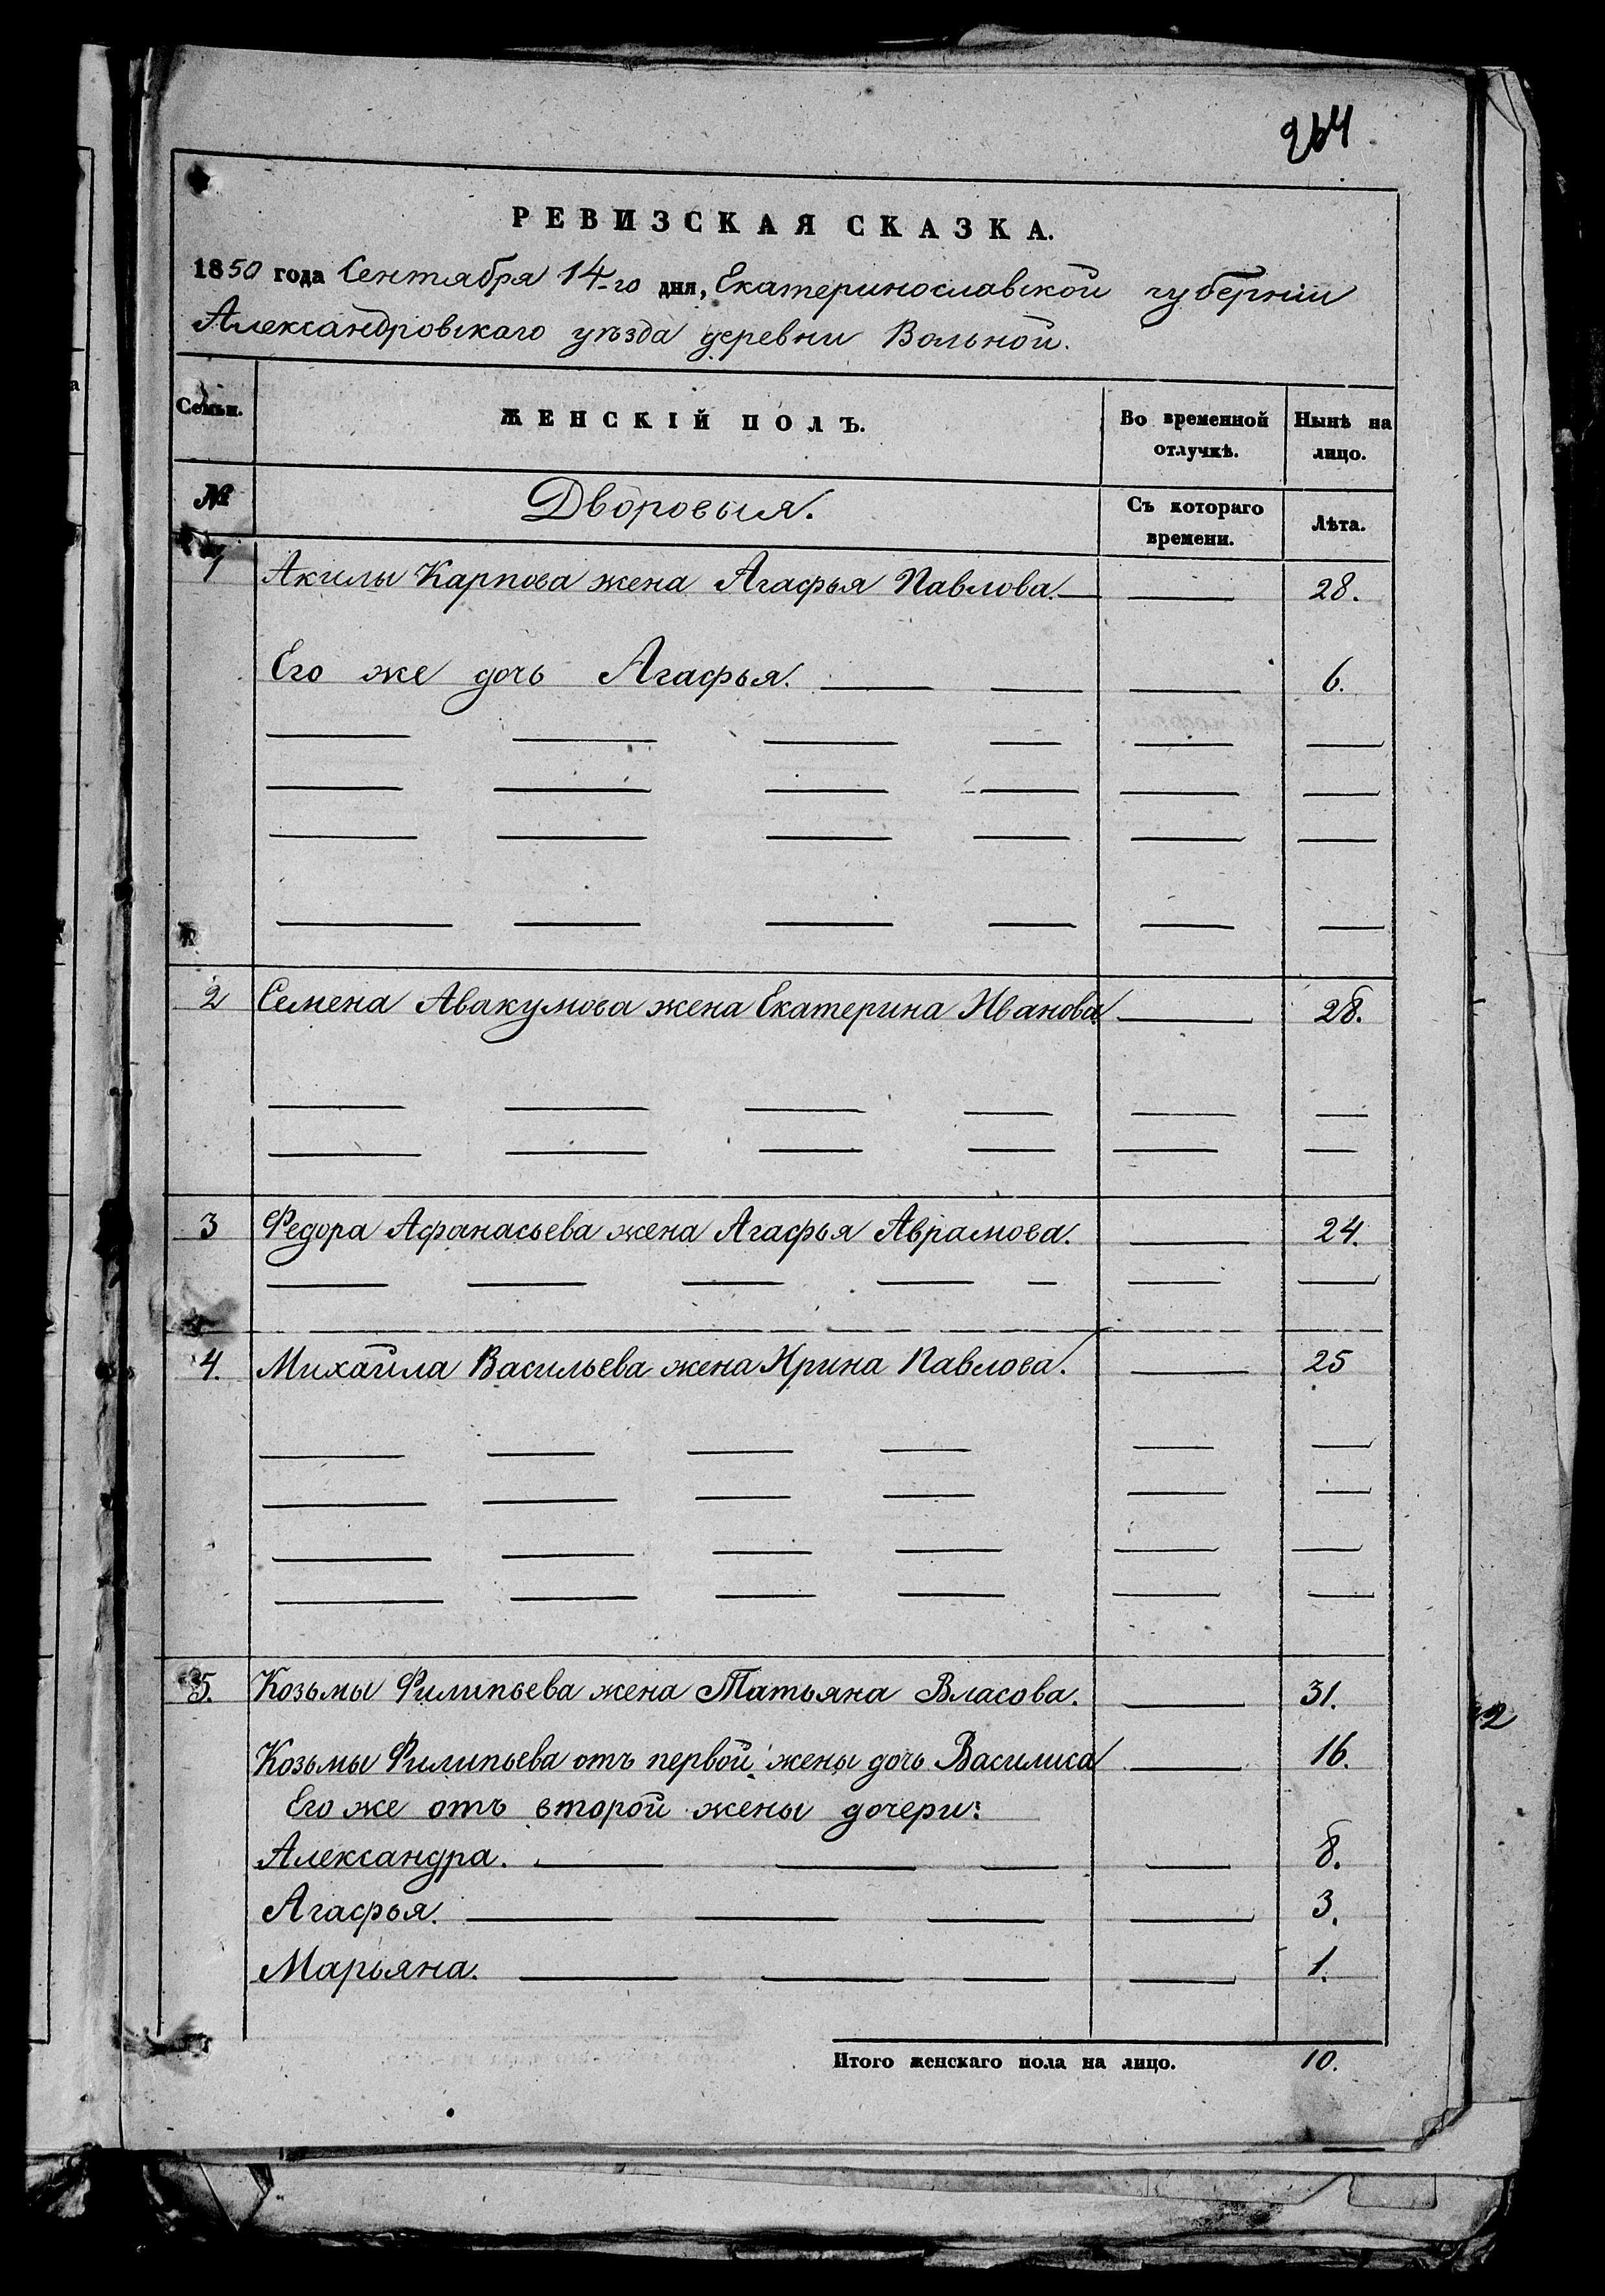 264
РЕВИЗСКАЯ СКАЗКА.
1850 года Сентября 14-го дня, Екатеринославской губернiи
Александровскаго уѣзда деревни Вольной.
Семьи.
ЖЕНСКIЙ ПОЛЪ.
Во временной отлучкѣ.
Нынѣ на лицо.
№
Дворовыя.
Съ котораго времени.
Лѣта.
1 Акилы Карпова жена Агафья Павлова. 28.
Его же дочь Агафья. 6.
2 Семена Авакумова жена Екатерина Иванова. 28.
3 Федора Афанасьева жена Агафья Аврамова. 24.
4. Михайла Васильева жена Ирина Павлова. 25
5. Козьмы Филипьева жена Татьяна Власова. 31.
Козьмы Филипьева отъ первой жены дочь Василиса 16.
Его же отъ второй жены дочери:
Александра. 8.
Агафья. 3.
Марьяна. 1.
Итого женскаго пола на лицо. 10.
2